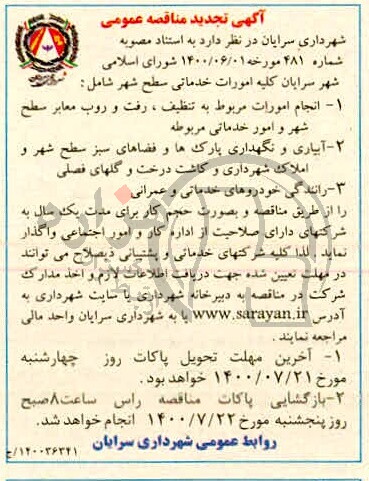 آگهی تجدید مناقصه عمومی
شهرداری سرایان در نظر دارد به استناد مصوبه
شماره ۴۸۱ مورخه ۱۴۰۰/۰۶/۰۱ شورای اسلامی
شهر سرایان کلیه امورات خدماتی سطح شهر شامل:
۱- انجام امورات مربوط به تنظیف ، رفت و روب معابر سطح
شهر و امور خدماتی مربوطه
۲-آبیاری و نگهداری پارک ها و فضاهای سبز سطح شهر و
املاک شهرداری و کاشت درخت و گلهای فصلی
۳-رانندگی خودروهای خدماتی و عمرانی
را از طریق مناقصه و بصورت حجم کار برای مدت یک سال به
شرکتهای دارای صلاحیت از اداره کار و امور اجتماعی واگذار
نماید . لذا کلیه شرکتهای خدماتی و پشتیبانی ذیصلاح می توانند
در مهلت تعیین شده جهت دریافت اطلاعات لازم و اخذ مدارک
شرکت در مناقصه به دبیرخانه شهرداری یا سایت شهرداری به
آدرس www.sarayan.ir یا به شهرداری سرایان واحد مالی
مراجعه نمایند .
۱- آخرین مهلت تحویل پاکات روز چهارشنبه
مورخ ۱۴۰۰/۰۷/۲۱ خواهد بود .
۲-بازگشایی پاکات مناقصه راس ساعت۸صبح
روز پنجشنبه مورخ ۱۴۰۰/۷/۲۲ انجام خواهد شد.
روابط عمومی شهرداری سرایان
۱۴۰۰۳۶۳۴۱/ج